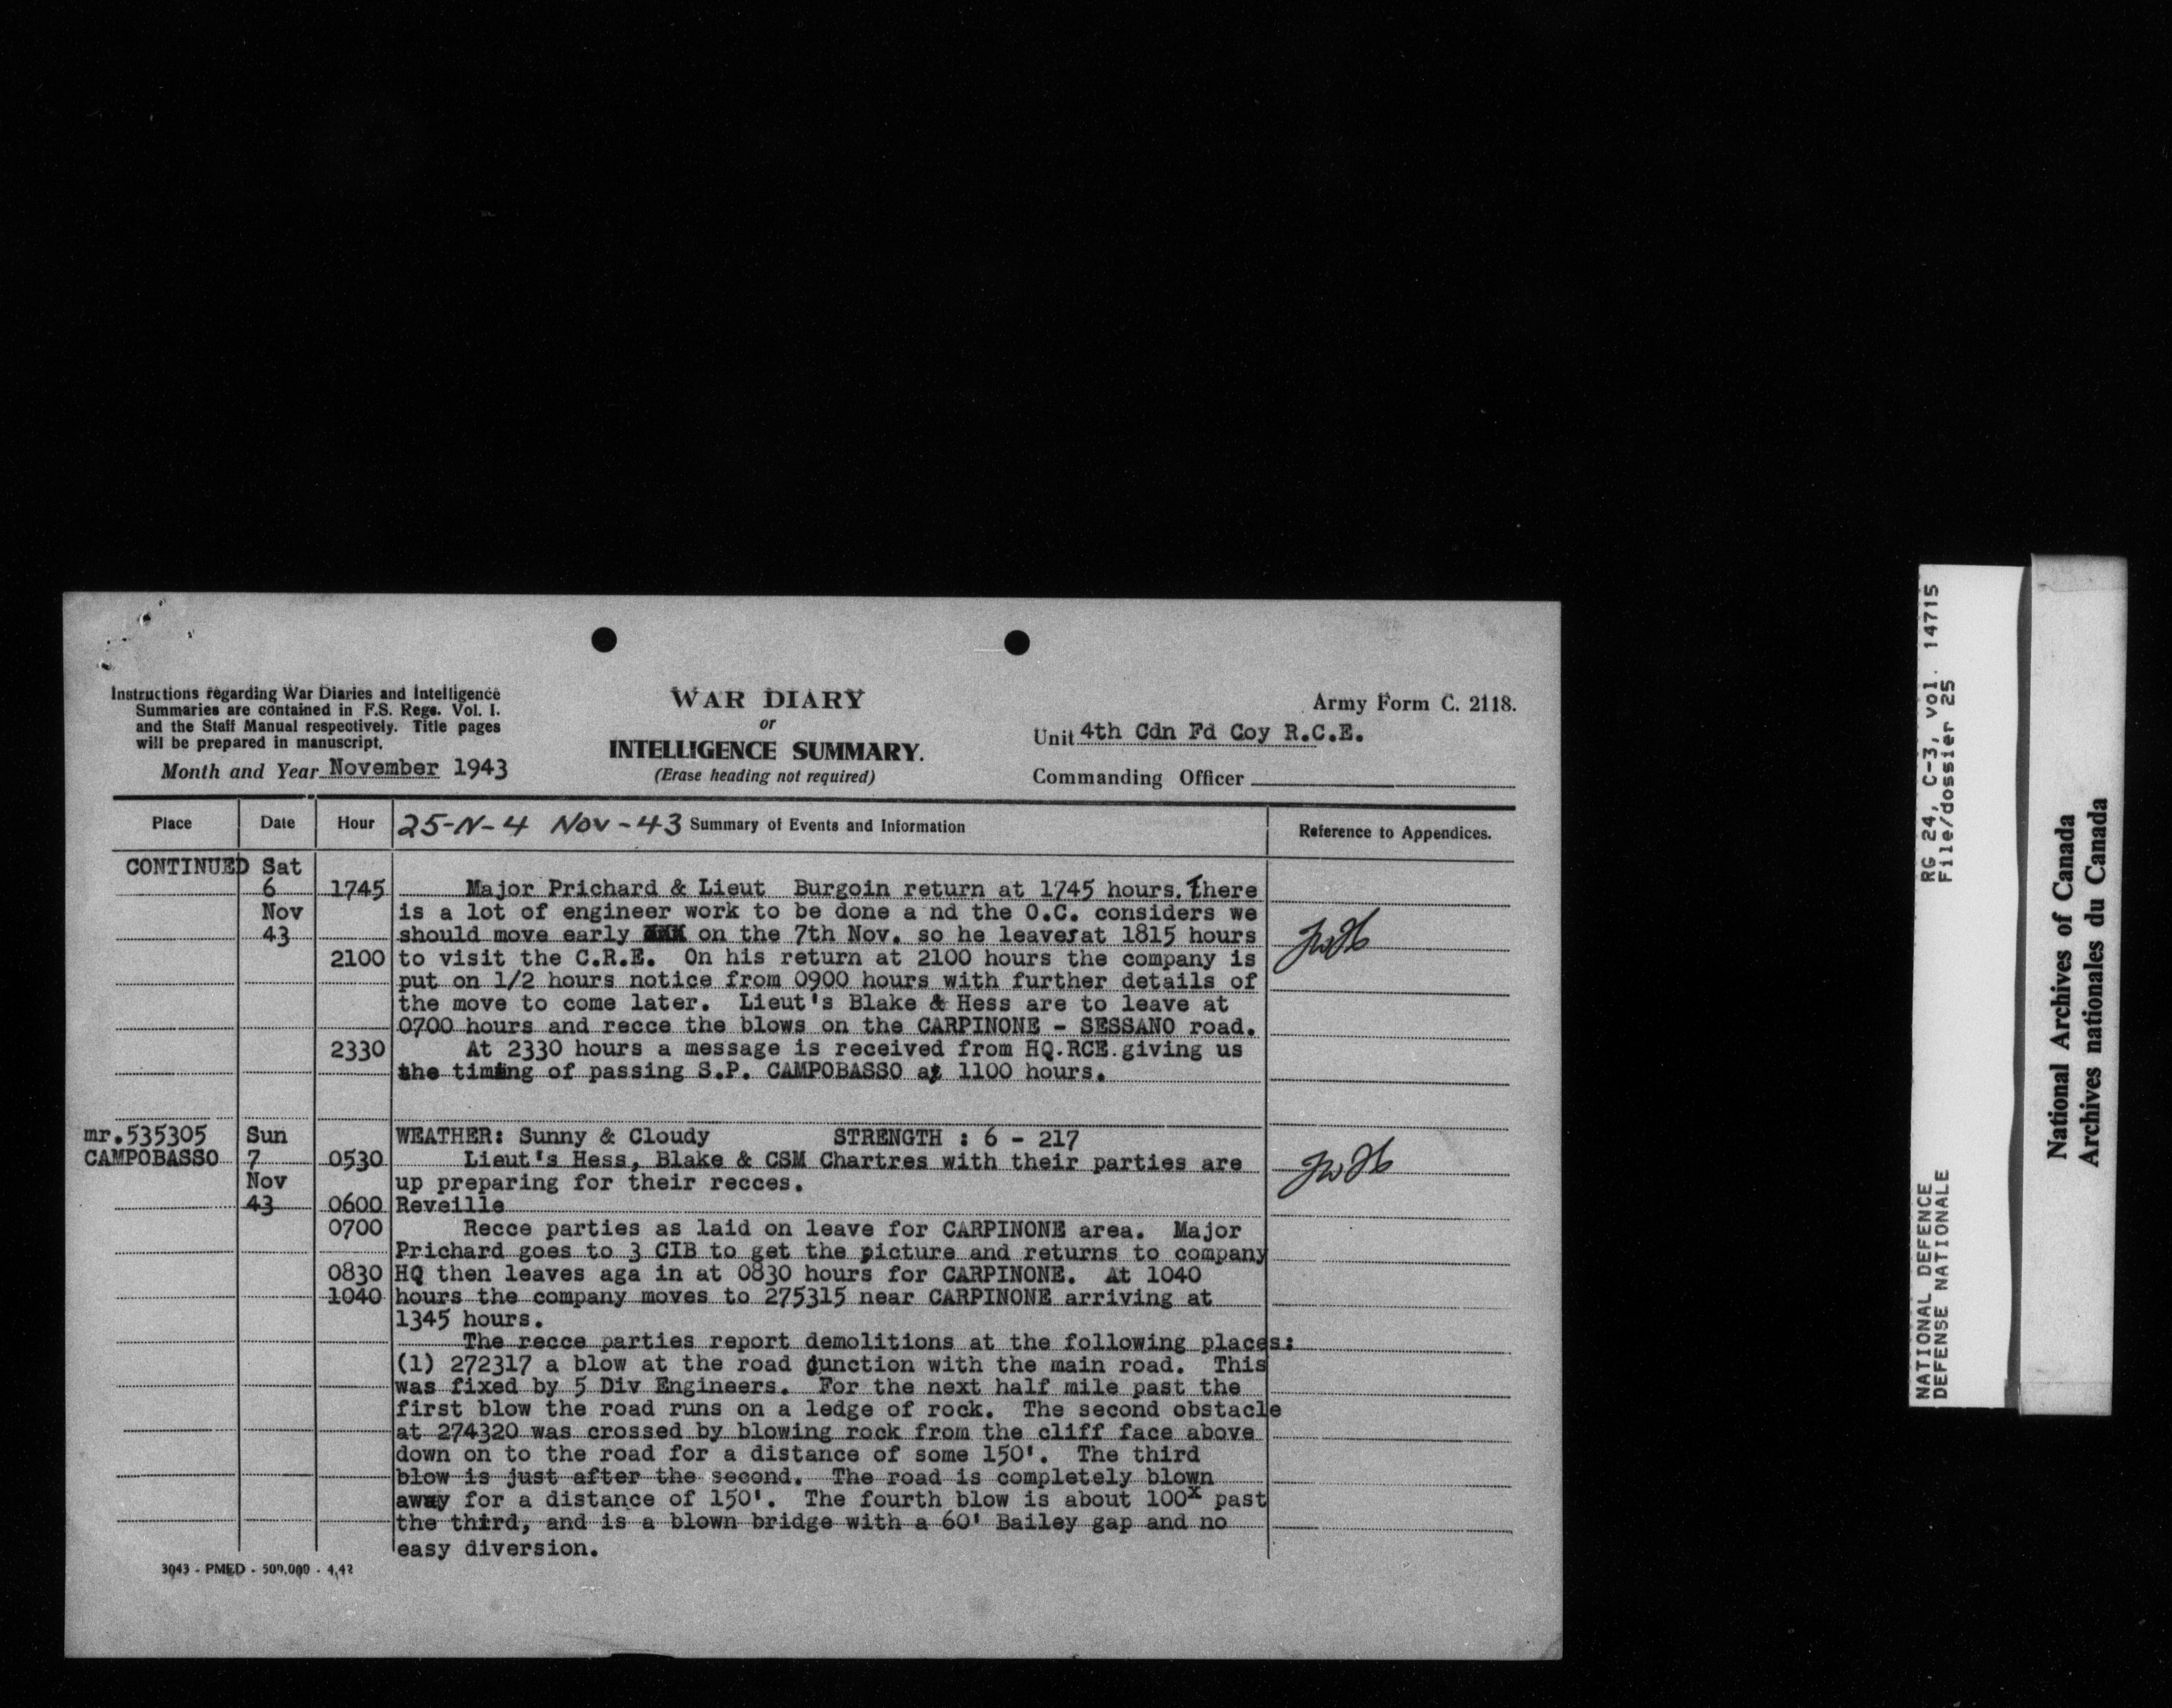 Instructions regarding War Diaries and Intelligence
Summaries are contained in F.S. Regs. Vol. I.
and the Staff Manual respectively. Title pages
will be prepared in manuscript.
Month and Year November 1943
WAR DIARY
or
INTELLIGENCE SUMMARY.
(Erase heading not required)
Army Form C. 2118.
Unit 4th Cdn Fd Coy R.C.E.
Commanding Officer
Place Date Hour 25-N-4 Nov-43 Summary of Events and Information Reference to Appendices.
CONTINUED Sat
6 1745 Major Prichard & Lieut Burgoin return at 1745 hours. There
Nov is a lot of engineer work to be done a nd the O.C. considers we
43 should move early on the 7th Nov. so he leaves at 1815 hours
2100 to visit the C.R.E. On his return at 2100 hours the company is
put on 1/2 hours notice from 0900 hours with further details of
the move to come later. Lieut's Blake & Hess are to leave at
0700 hours and recce the blows on the CARPINONE - SESSANO road.
2330 At 2330 hours a message is received from HQ.RCE.giving us
the timing of passing S.P. CAMPOBASSO at 1100 hours.
mr.535305 Sun WEATHER: Sunny & Cloudy STRENGTH : 6 - 217
CAMPOBASSO 7 0530 Lieut's Hess, Blake & CSM Chartres with their parties are
Nov up preparing for their recces.
43 0600 Reveille
0700 Recce parties as laid on leave for CARPINONE area. Major
Prichard goes to 3 CIB to get the picture and returns to company
0830 HQ then leaves aga in at 0830 hours for CARPINONE. At 1040
1040 hours the company moves to 275315 near CARPINONE arriving at
1345 hours.
The recce parties report demolitions at the following places:
(1) 272317 a blow at the road junction with the main road. This
was fixed by 5 Div Engineers. For the next half mile past the
first blow the road runs on a ledge of rock. The second obstacle
at 274320 was crossed by blowing rock from the cliff face above
down on to the road for a distance of some 150'. The third
blow is just after the second. The road is completely blown
away for a distance of 150'. The fourth blow is about 100x past
the third, and is a blown bridge with a 60' Bailey gap and no
easy diversion.
3043 - PMED - 500.000 - 4.42
NATIONAL DEFENCE RG 24, C-3, vol. 14715
DEFENSE NATIONALE File/dossier 25
National Archives of Canada
Archives nationales du Canada